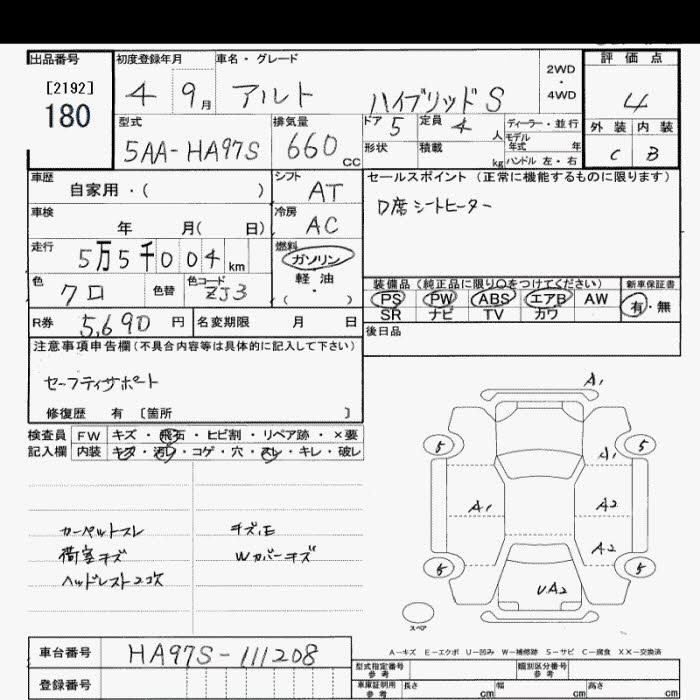 出品番号 初度登録年月 車名・グレード 評価点
[2192]
180
4 9月 アルト ハイブリッドS
2WD
・
4WD
4
型式 排気量 ドア 5 定員 4 人 ディーラー・並行 外装 内装
モデル
年式 年
5AA-HA97S 660cc 形状 積載 kg ハンドル 左・右 C B
車歴 シフト セールスポイント(正常に機能するものに限ります)
自家用・( ) AT
D席シートヒーター
車検 冷房
年 月( 日) AC
走行 燃料
5万5千004km ガソリン
軽油
・
( )
装備品(純正品に限り○をつけてください) 新車保証書
色 色替 色コード
クロ ZJ3
PS PW ABS エアB AW 有・無
SR ナビ TV カワ
R券 5,690円 名変期限 月 日
後日品
注意事項申告欄(不具合内容等は具体的に記入して下さい)
セーフティサポート
修復歴 有 〔箇所 〕
検査員 FW キズ・飛石・ヒビ割・リペア跡・×要
記入欄 内装 キズ・汚レ・コゲ・穴・スレ・キレ・破レ
A1
5 5
A1
A1 A2
A2
5 5
UA2
スペア
カーペットスレ キズ,E
荷室キズ Wカバーキズ
ヘッドレスト2コ欠
A-キズ E-エクボ U-凹み W-補修跡 S-サビ C-腐食 XX-交換済
車台番号 HA97S-111208
型式指定番号 類別区分番号
参考 参考
登録番号
車庫証明用 長さ 幅 高さ
参考 cm cm cm